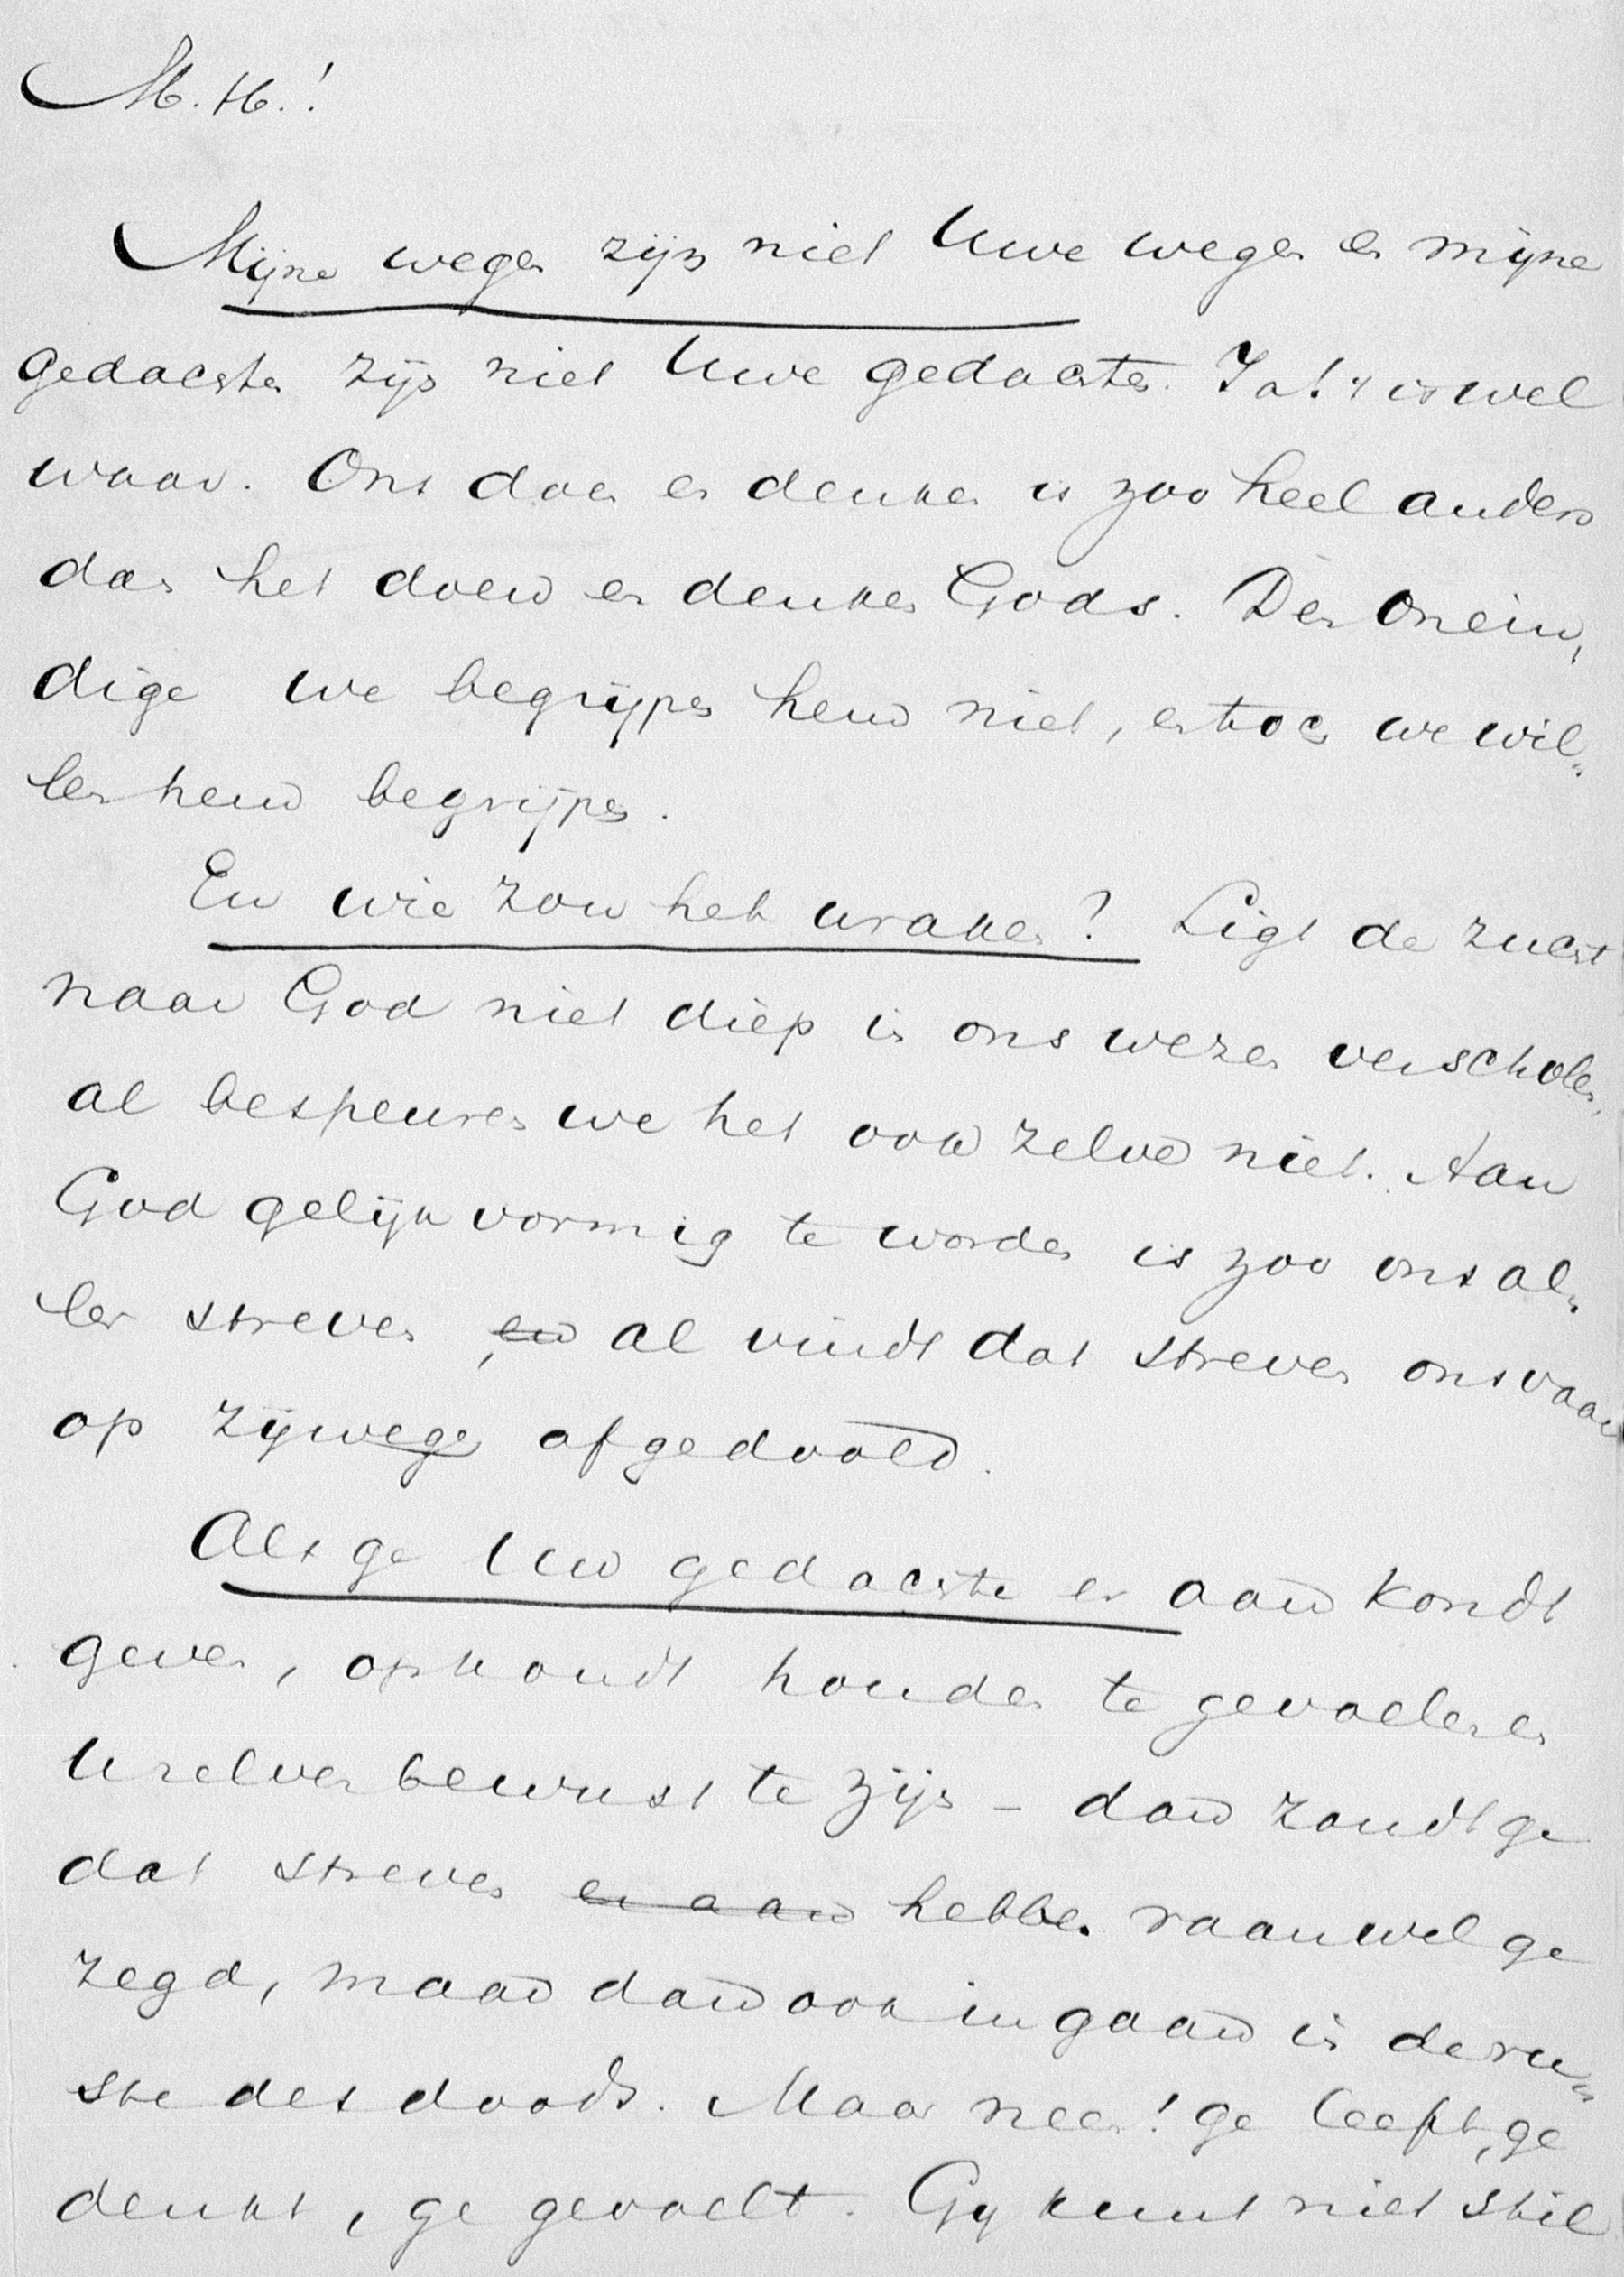 M. H.!
Mijne wegen zijn niet Uwe wegen en mijne
gedachten zijn niet Uwe gedachten. Ja! 't is wel
waar. Ons doen en denken is zoo heel anders
dan het doen en denken Gods. Den Onein„
dige we begrijpen hem niet, en toch we wil„
len hem begrijpen.
En wie zou het wraken? Ligt de zucht
naar God niet diep in ons wezen verscholen,
al bespeuren we het ook zelve niet. Aan
God gelijkvormig te worden is zoo ons al„
ler streven, en al vindt dat streven ons vaak
op zijwegen afgedoold.
Als ge Uw gedachte er aan kondt
geven, ophoudt houden te gevoelen en
U zelven bewust te zijn – dan zoudt ge
dat streven er aan hebben vaarwel ge
zegd, maar dan ook ingaan in de ru„
ste des doods. Maar neen! ge leeft, ge
denkt, ge gevoelt. Gy kunt niet stil